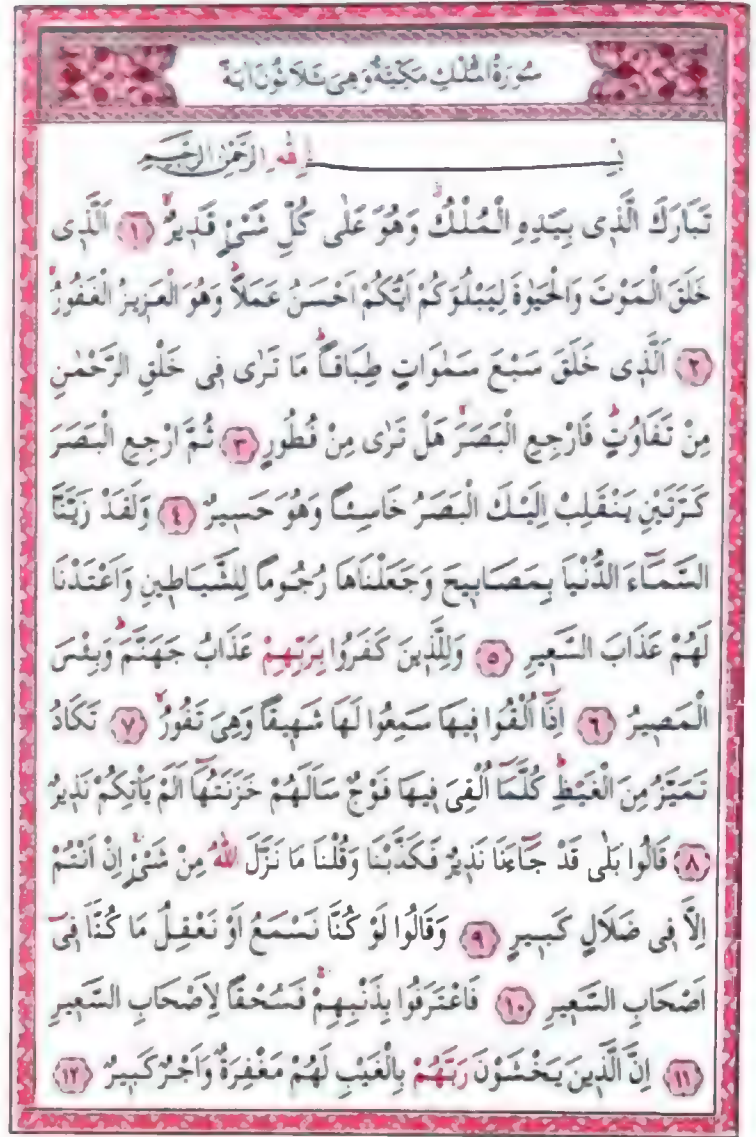 سُورَةُ الْمُلْكِ مَكِّيَّةٌ وَهِيَ ثَلَاثُونَ اٰيَةً
بِسْـــــــــمِ اللّٰهِ الرَّحْمٰنِ الرَّحٖيمِ
تَبَارَكَ الَّذٖى بِيَدِهِ الْمُلْكُ وَهُوَ عَلٰى كُلِّ شَیْءٍ قَدٖيرٌ ﴿١﴾ اَلَّذٖى
خَلَقَ الْمَوْتَ وَالْحَيٰوةَ لِيَبْلُوَكُمْ اَيُّكُمْ اَحْسَنُ عَمَلًا وَهُوَ الْعَزٖيزُ الْغَفُورُ
﴿٢﴾ اَلَّذٖى خَلَقَ سَبْعَ سَمٰوَاتٍ طِبَاقًا مَا تَرٰى فٖى خَلْقِ الرَّحْمٰنِ
مِنْ تَفَاوُتٍ فَارْجِعِ الْبَصَرَ هَلْ تَرٰى مِنْ فُطُورٍ ﴿٣﴾ ثُمَّ ارْجِعِ الْبَصَرَ
كَرَّتَيْنِ يَنْقَلِبْ اِلَيْكَ الْبَصَرُ خَاسِئًا وَهُوَ حَسٖيرٌ ﴿٤﴾ وَلَقَدْ زَيَّنَّا
السَّمَٓاءَ الدُّنْيَا بِمَصَابٖيحَ وَجَعَلْنَاهَا رُجُومًا لِلشَّيَاطٖينِ وَاَعْتَدْنَا
لَهُمْ عَذَابَ السَّعٖيرِ ﴿٥﴾ وَلِلَّذٖينَ كَفَرُوا بِرَبِّهِمْ عَذَابُ جَهَنَّمَ وَبِئْسَ
الْمَصٖيرُ ﴿٦﴾ اِذَٓا اُلْقُوا فٖيهَا سَمِعُوا لَهَا شَهٖيقًا وَهِیَ تَفُورُ ﴿٧﴾ تَكَادُ
تَمَيَّزُ مِنَ الْغَيْظِ كُلَّمَٓا اُلْقِیَ فٖيهَا فَوْجٌ سَاَلَهُمْ خَزَنَتُهَٓا اَلَمْ يَاْتِكُمْ نَذٖيرٌ
﴿٨﴾ قَالُوا بَلٰى قَدْ جَٓاءَنَا نَذٖيرٌ فَكَذَّبْنَا وَقُلْنَا مَا نَزَّلَ اللّٰهُ مِنْ شَیْءٍ اِنْ اَنْتُمْ
اِلَّا فٖى ضَلَالٍ كَبٖيرٍ ﴿٩﴾ وَقَالُوا لَوْ كُنَّا نَسْمَعُ اَوْ نَعْقِلُ مَا كُنَّا فٖٓى
اَصْحَابِ السَّعٖيرِ ﴿١٠﴾ فَاعْتَرَفُوا بِذَنْبِهِمْ فَسُحْقًا لِاَصْحَابِ السَّعٖيرِ
﴿١١﴾ اِنَّ الَّذٖينَ يَخْشَوْنَ رَبَّهُمْ بِالْغَيْبِ لَهُمْ مَغْفِرَةٌ وَاَجْرٌ كَبٖيرٌ ﴿١٢﴾